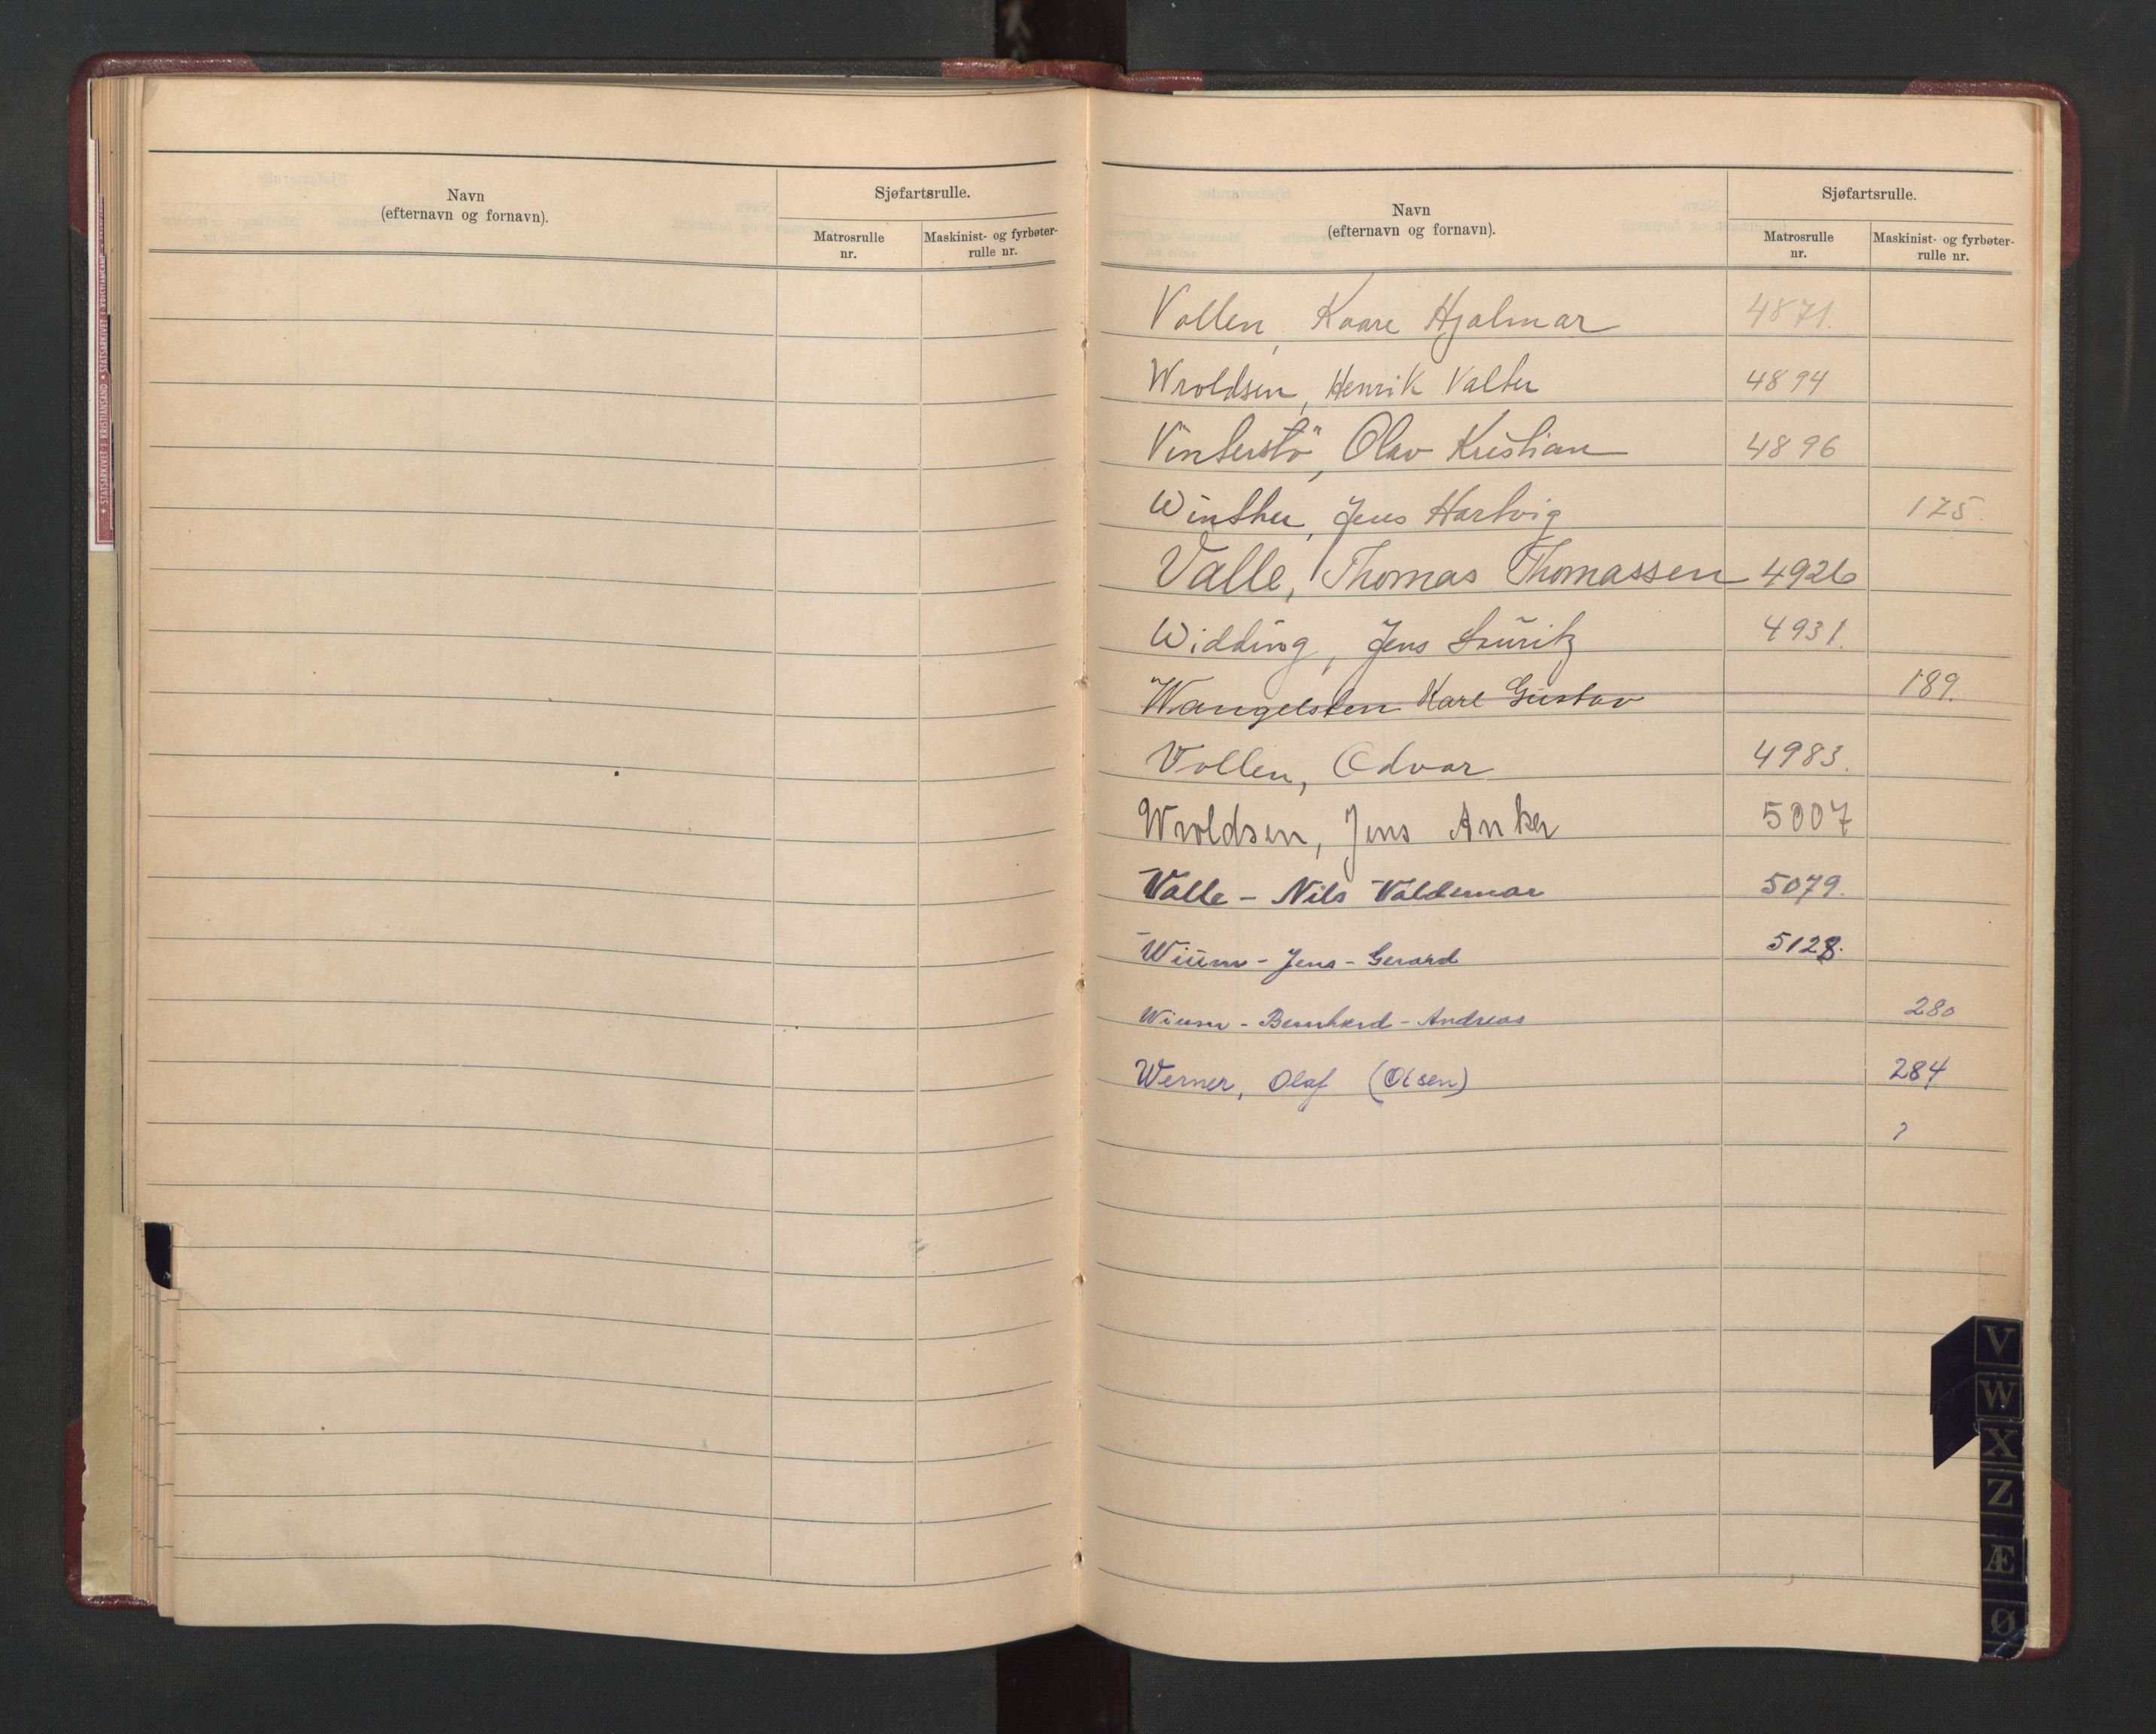 Navn
(efternavn og fornavn).
Sjøfartsrulle.
Matrosrulle
nr.
Maskinist- og fyrbøter-
rulle nr.
Navn
(efternavn og fornavn).
Sjøfartsrulle.
Matrosrulle
nr.
Maskinist- og fyrbøter-
rulle nr.
Vollen, Kaare Hjalmar 4871.
Wroldsen, Henrik Valter 4894
Vinterstö, Olav Kristian 4896
Winther, Jens Hartvig 175.
Valle, Thomas Thomassen 4926
Widding, Jens Lauritz 4931.
Wangelsten Karl Gustav 189.
Vollen, Odvar 4983.
Wroldsen, Jens Anker 5007
Valle - Nils Valdemar 5079.
Wium - Jens - Gerard 5128.
Wium - Bernhard - Andreas 280
Werner, Olaf (Olsen) 284
V
W
X
Z
Æ
Ø
★ STATSARKIVET I KRISTIANSAND ★ STATSARKIVET I KRISTIANSAND